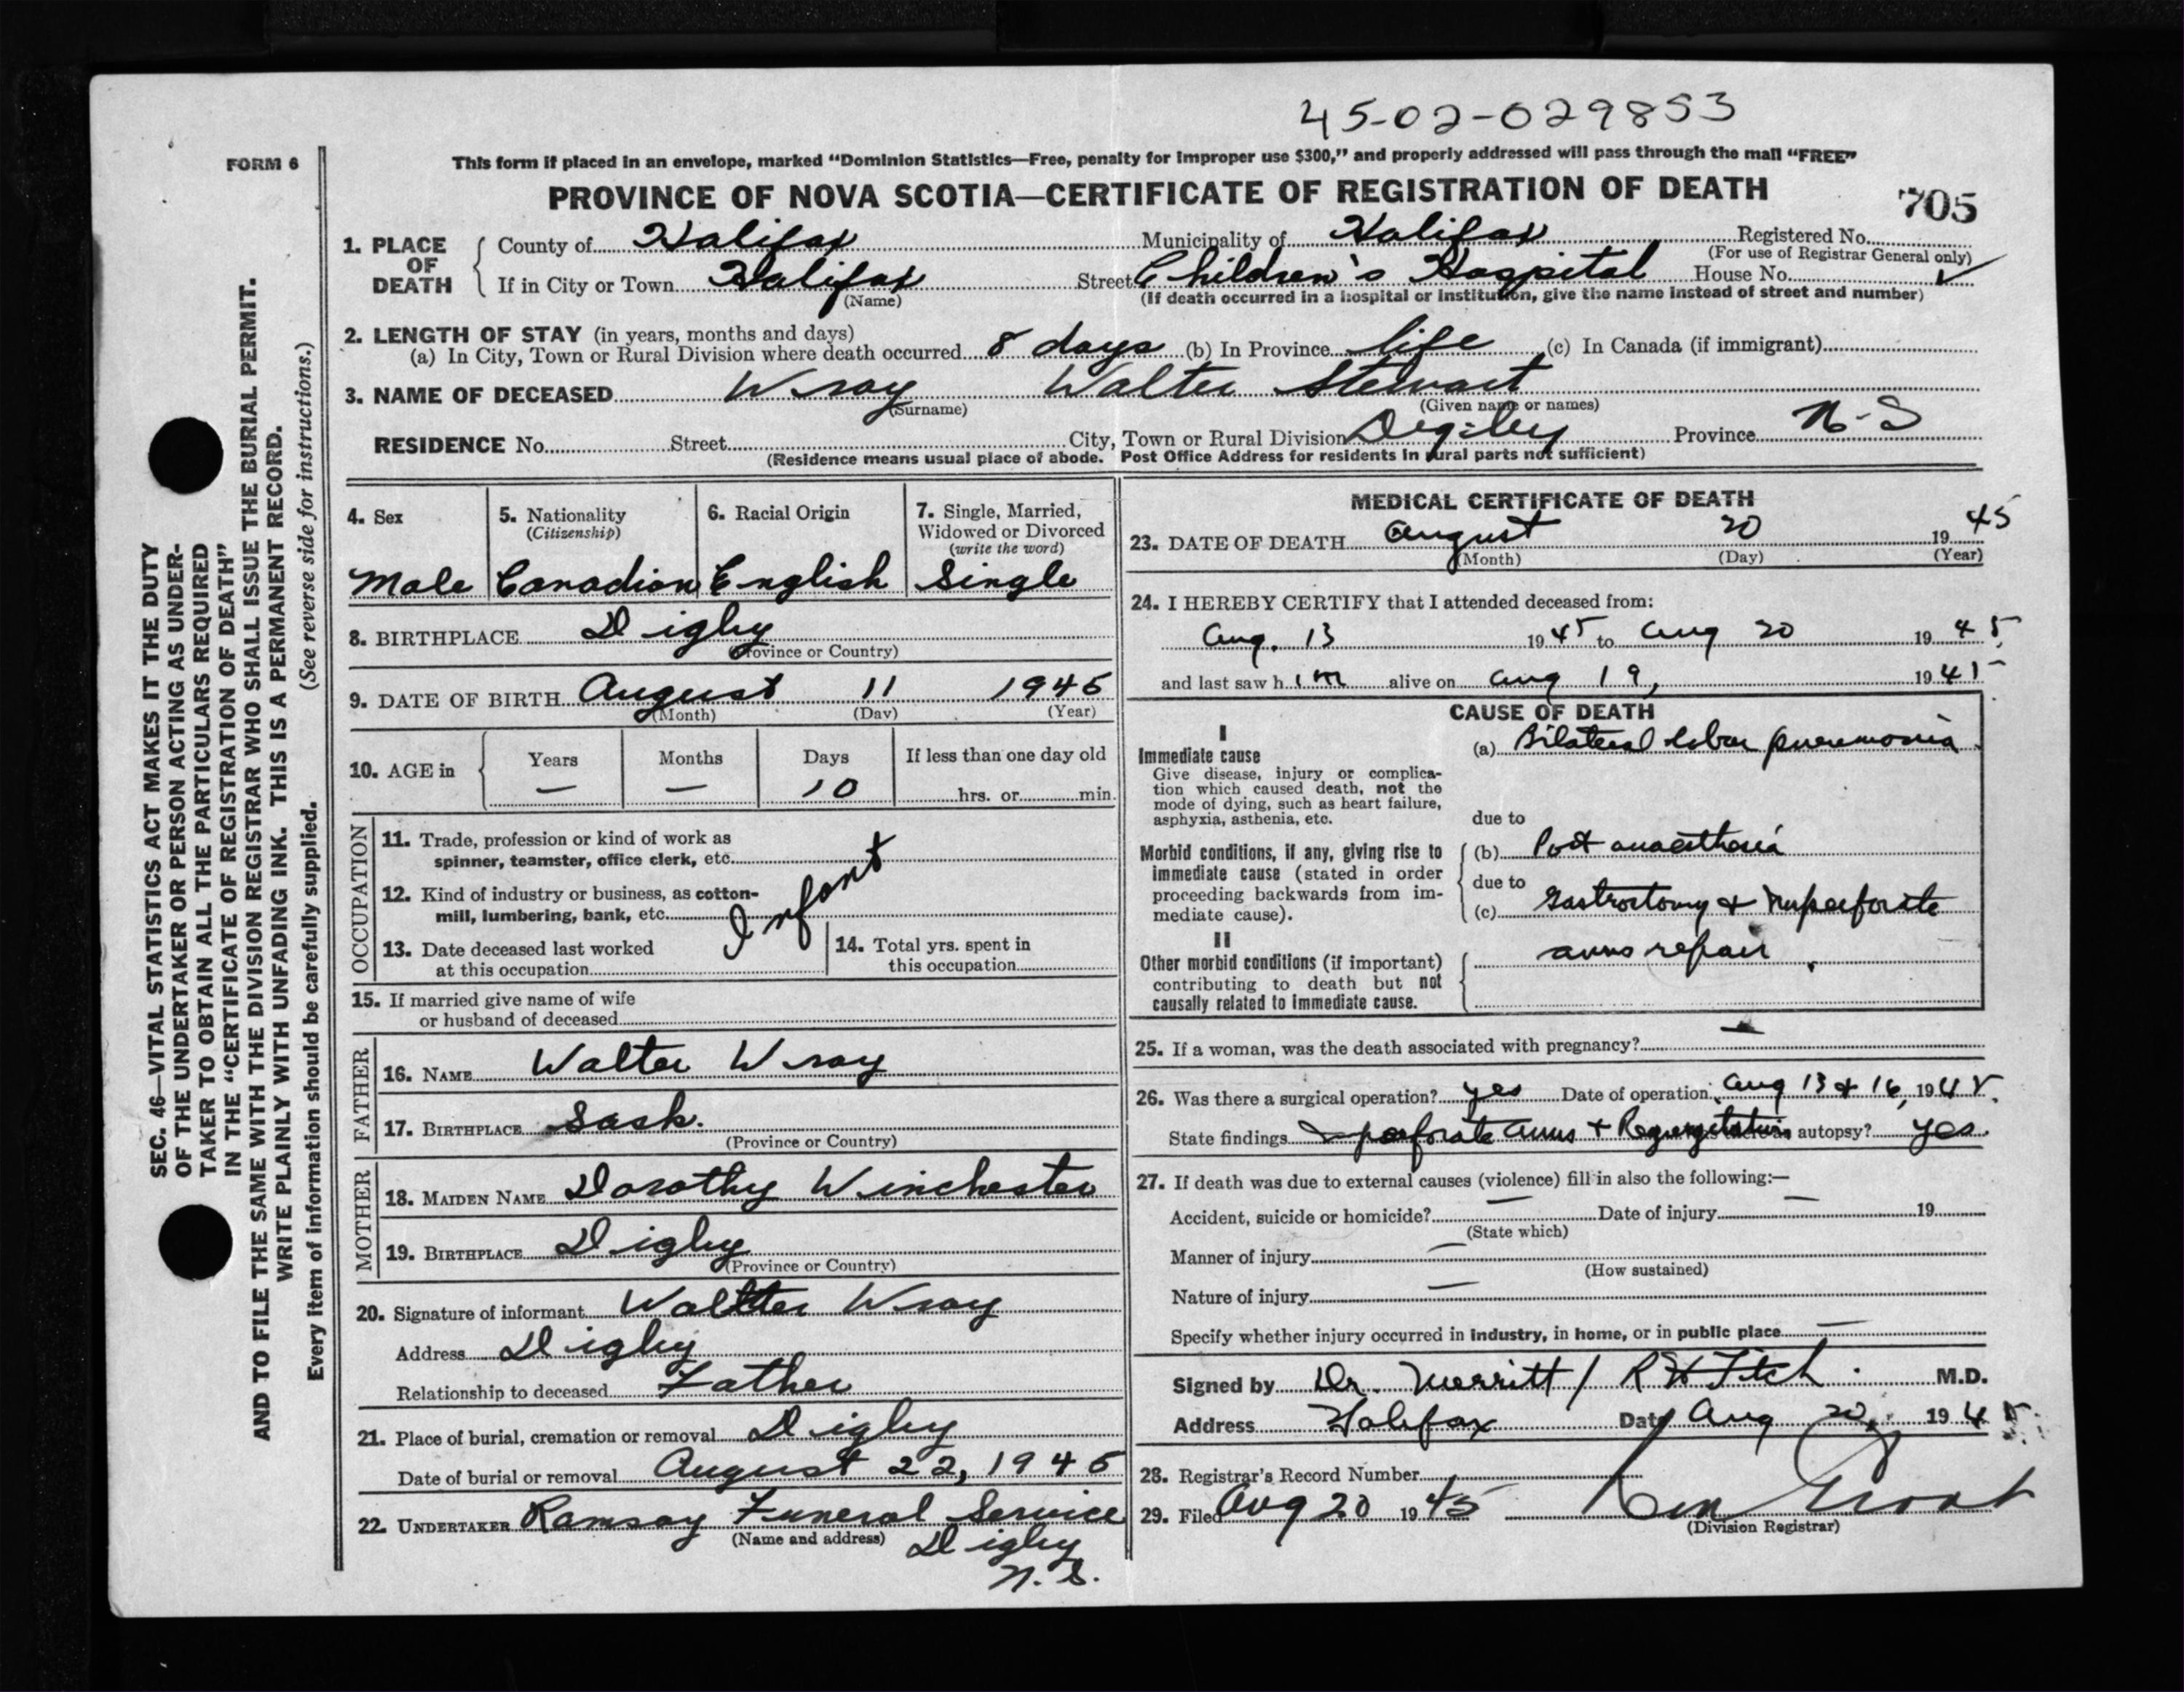 45-02-029853
FORM 6
This form if placed in an envelope, marked "Dominion Statistics—Free, penalty for improper use $300," and properly addressed will pass through the mail "FREE"
PROVINCE OF NOVA SCOTIA—CERTIFICATE OF REGISTRATION OF DEATH
705
1. PLACE OF DEATH
County of Halifax Municipality of Halifax Registered No.
(For use of Registrar General only)
If in City or Town Halifax Street Children's Hospital House No.
(Name) (If death occurred in a hospital or institution, give the name instead of street and number)
2. LENGTH OF STAY (in years, months and days)
(a) In City, Town or Rural Division where death occurred 8 days (b) In Province life (c) In Canada (if immigrant)
3. NAME OF DECEASED Wray Walter Stewart
(Surname) (Given name or names)
RESIDENCE No. Street City, Town or Rural Division Digby Province N-S
(Residence means usual place of abode. Post Office Address for residents in rural parts not sufficient)
4. Sex
Male
5. Nationality
(Citizenship)
Canadian
6. Racial Origin
English
7. Single, Married,
Widowed or Divorced
(write the word)
Single
8. BIRTHPLACE Digby
(Province or Country)
9. DATE OF BIRTH August 11 1945
(Month) (Day) (Year)
10. AGE in
Years Months Days If less than one day old
— — 10 hrs. or min.
OCCUPATION
11. Trade, profession or kind of work as
spinner, teamster, office clerk, etc.
12. Kind of industry or business, as cotton-
mill, lumbering, bank, etc.
Infant
13. Date deceased last worked
at this occupation
14. Total yrs. spent in
this occupation
15. If married give name of wife
or husband of deceased
FATHER
16. NAME Walter Wray
17. BIRTHPLACE Sask.
(Province or Country)
MOTHER
18. MAIDEN NAME Dorothy Winchester
19. BIRTHPLACE Digby
(Province or Country)
20. Signature of informant Walter Wray
Address Digby
Relationship to deceased Father
21. Place of burial, cremation or removal Digby
Date of burial or removal August 22, 1945
22. UNDERTAKER Ramsay Funeral Service
(Name and address) Digby
N.S.
MEDICAL CERTIFICATE OF DEATH
23. DATE OF DEATH August 20 1945
(Month) (Day) (Year)
24. I HEREBY CERTIFY that I attended deceased from:
Aug. 13 1945 to Aug 20 1945
and last saw him alive on Aug 19, 1945
CAUSE OF DEATH
I
Immediate cause
Give disease, injury or complica-
tion which caused death, not the
mode of dying, such as heart failure,
asphyxia, asthenia, etc.
(a) Bilateral lobar pneumonia
due to
Morbid conditions, if any, giving rise to
immediate cause (stated in order
proceeding backwards from im-
mediate cause).
(b) Post anaesthesia
due to
(c) Gastrostomy & Imperforate
anus repair
II
Other morbid conditions (if important)
contributing to death but not
causally related to immediate cause.
25. If a woman, was the death associated with pregnancy? —
26. Was there a surgical operation? yes Date of operation Aug 13 & 16, 1945.
State findings Imperforate anus + Regurgitation autopsy? yes.
27. If death was due to external causes (violence) fill in also the following:—
Accident, suicide or homicide? — Date of injury — 19
(State which)
Manner of injury —
(How sustained)
Nature of injury —
Specify whether injury occurred in industry, in home, or in public place —
Signed by Dr. Merritt / R W Fitch. M.D.
Address Halifax Date Aug 20, 1945
28. Registrar's Record Number
29. Filed Aug 20 1945
(Division Registrar)
SEC. 46—VITAL STATISTICS ACT MAKES IT THE DUTY
OF THE UNDERTAKER OR PERSON ACTING AS UNDER-
TAKER TO OBTAIN ALL THE PARTICULARS REQUIRED
IN THE "CERTIFICATE OF REGISTRATION OF DEATH"
AND TO FILE THE SAME WITH THE DIVISION REGISTRAR WHO SHALL ISSUE THE BURIAL PERMIT.
WRITE PLAINLY WITH UNFADING INK. THIS IS A PERMANENT RECORD.
Every item of information should be carefully supplied. (See reverse side for instructions.)